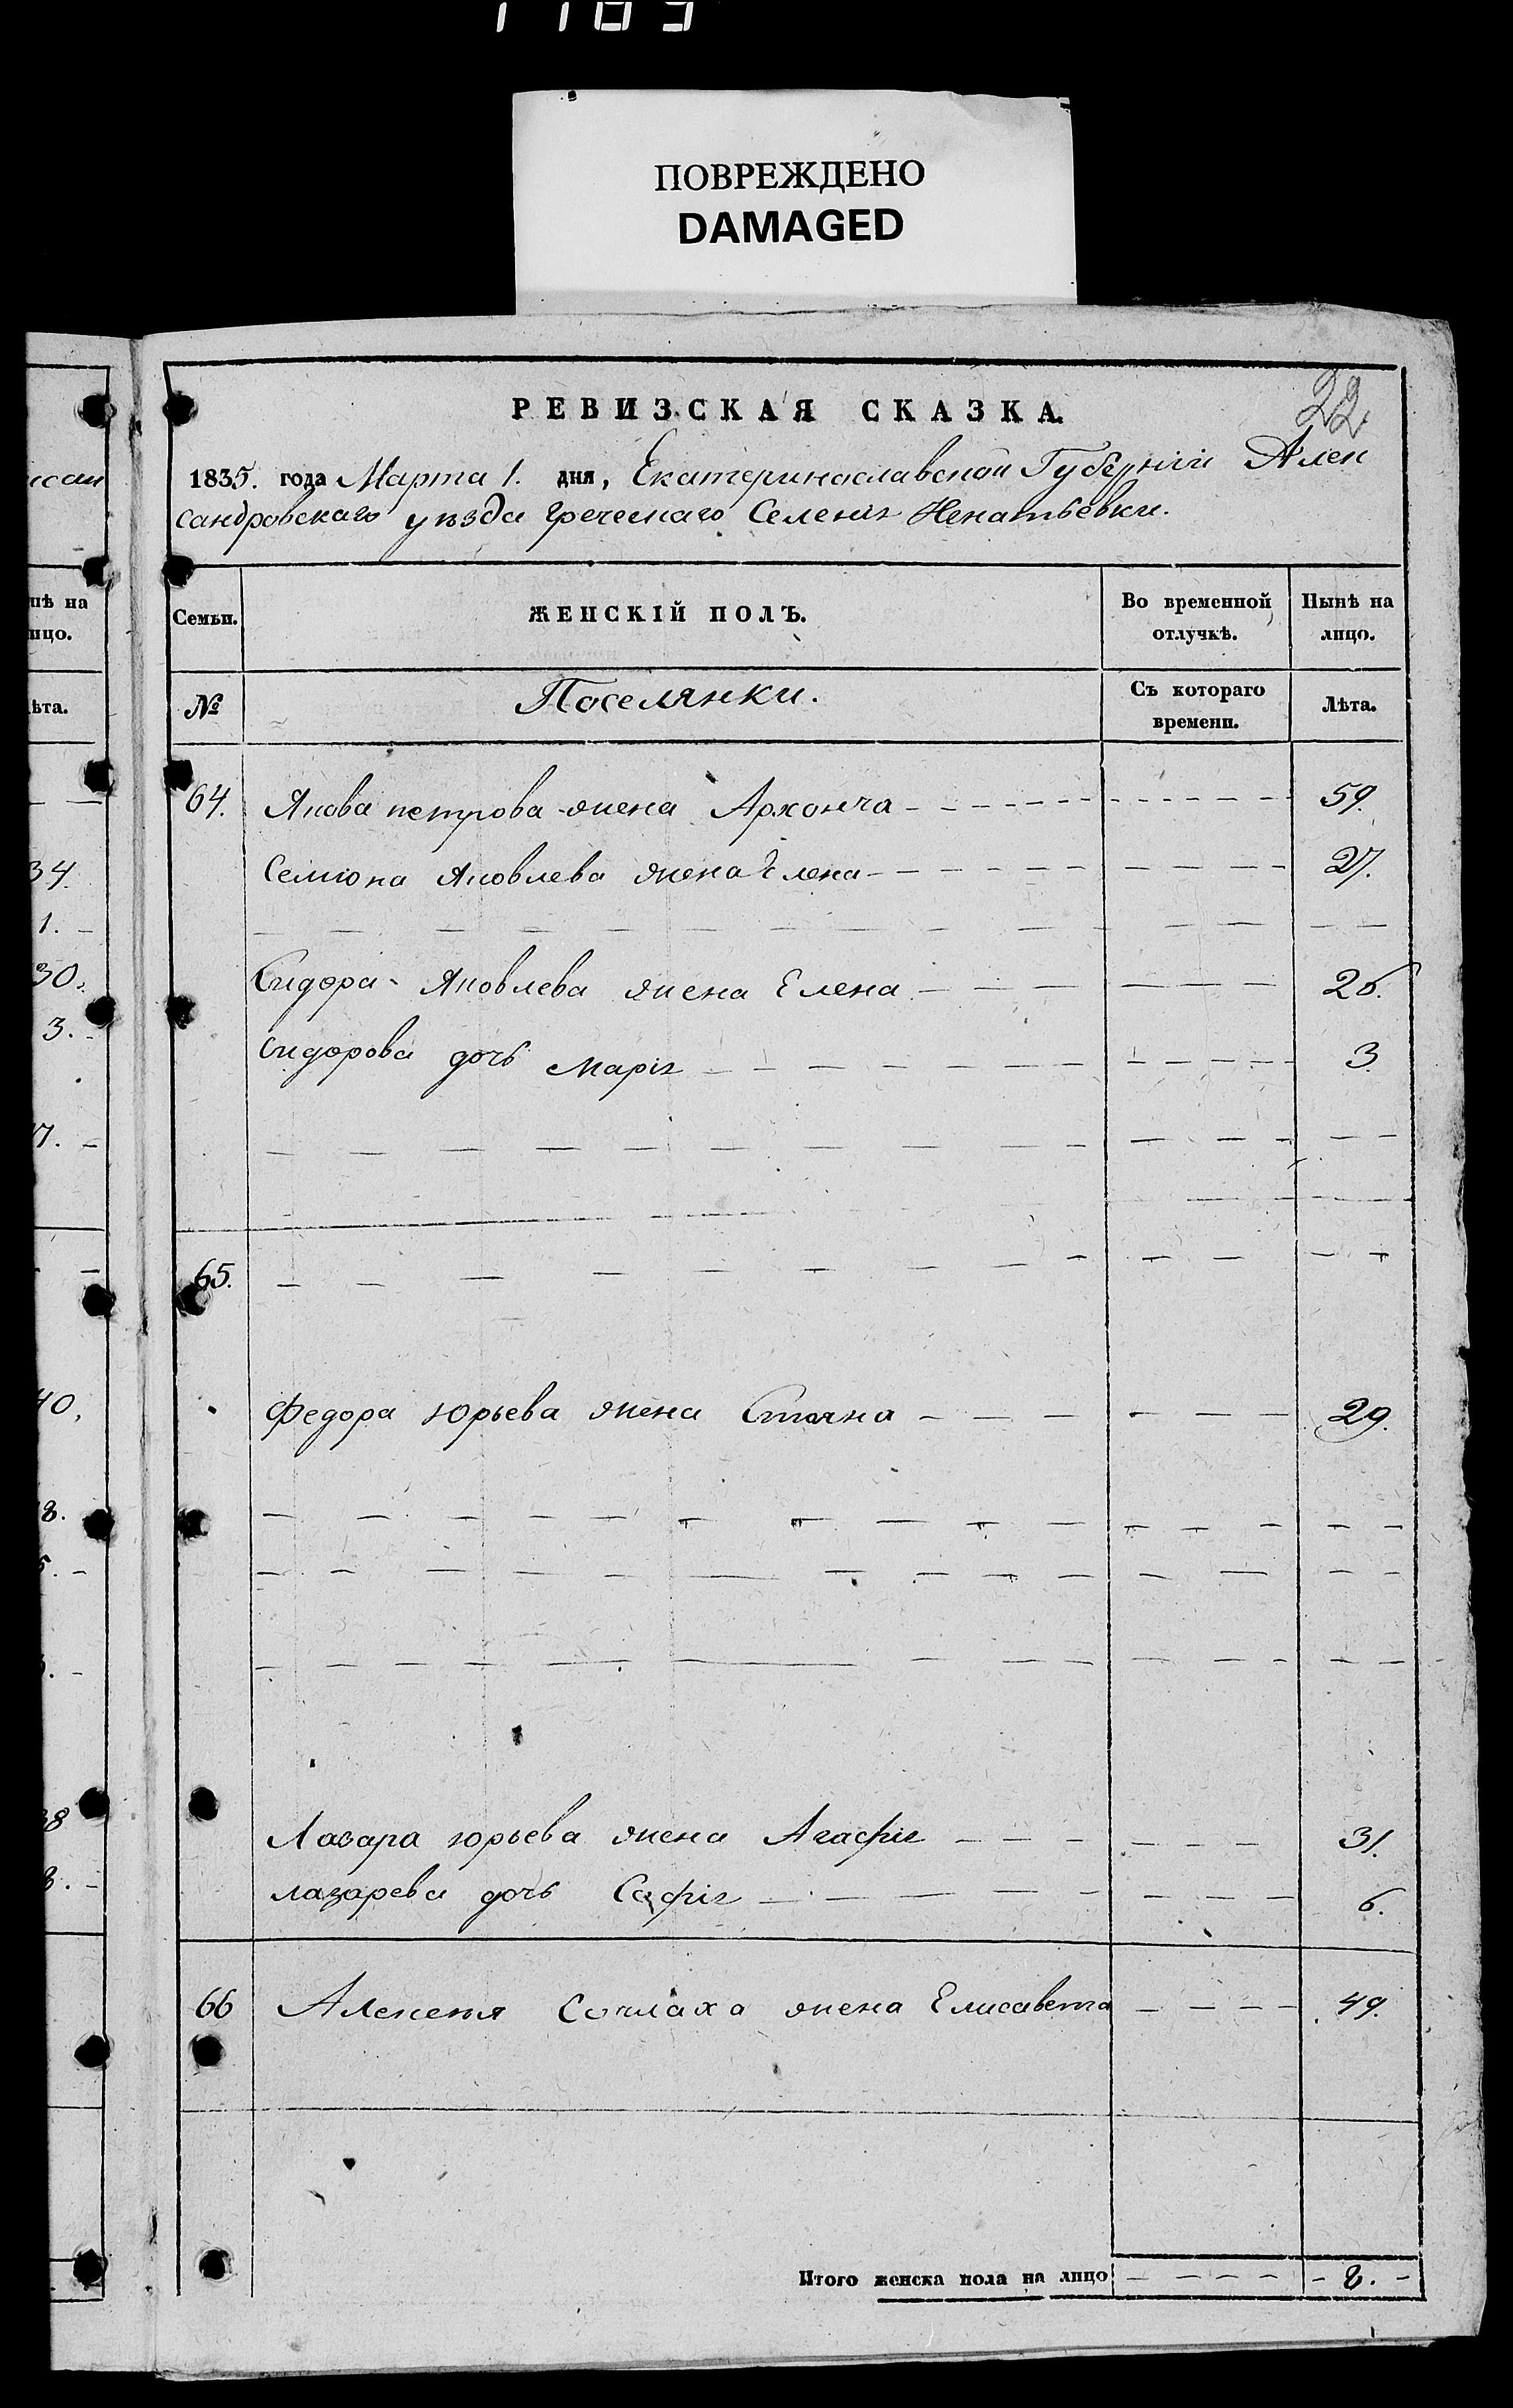 ПОВРЕЖДЕНО
DAMAGED
22
РЕВИЗСКАЯ СКАЗКА.
1835. года Марта 1. дня, Екатеринославской Губерніи Алек
сандровскаго уѣзда Греческаго Селенія Игнатьевки.
Семьи. ЖЕНСКІЙ ПОЛЪ. Во временной отлучкѣ. Нынѣ на лицо.
№ Поселянки. Съ котораго времени. Лѣта.
64. Якова петрова жена Архонча 59.
Семіона Яковлева жена Елена 27.
Сидора Яковлева жена Елена 26.
Сидорова дочь Марія 3
65.
Федора Юрьева жена 29.
Лазара юрьева жена Агафія 31.
лазарева дочь Софія 6.
66 Алексея жена Елисавета 49.
Итого женска пола на лицо 8.
нѣ на
ицо.
ѣта.
34.
1.
30.
3.
7.
40.
8.
38
8.